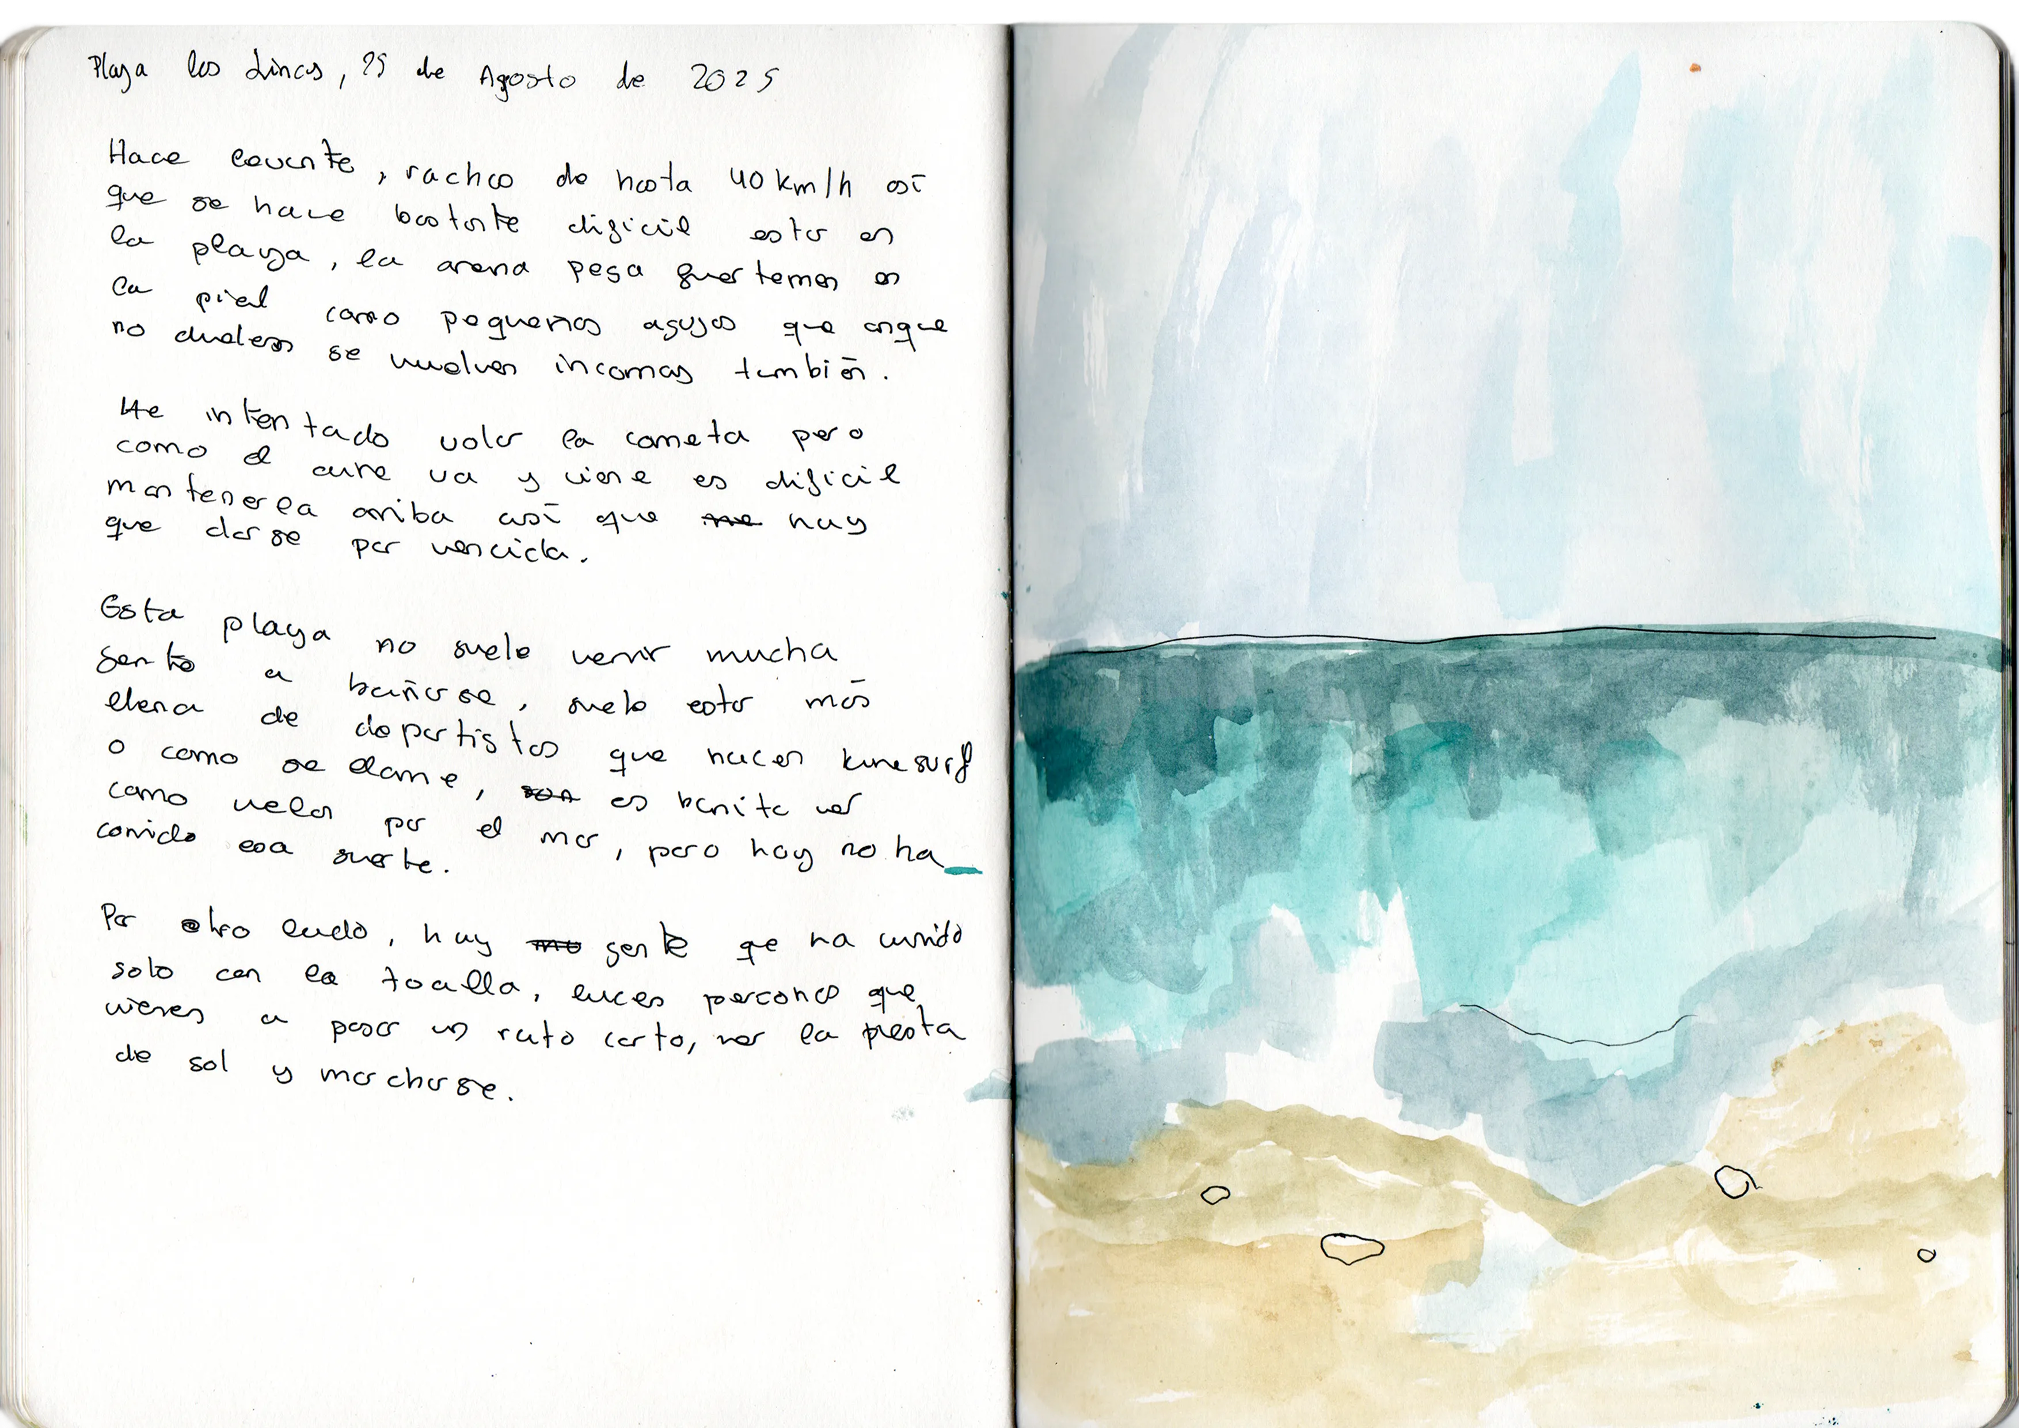 Playa los Lances, 25 de Agosto de 2025
Hace levante, rachas de hasta 40 km/h así
que se hace bastante dificil estar en
la playa, la arena pega fuertemen en
la piel como pequeños agujas que anque
no duelen se vuelven incomas también.
He intentado volar la cometa pero
como el aire va y viene es dificil
mantenerla arriba así que me hay
que darse por vencida.
Esta playa no suele venir mucha
gente a bañarse, suele estar más
llena de deportistas que hacen kinesurf
o como se llame, son es bonito ver
como vuelan por el mar, pero hoy no ha
corrido esa suerte.
Por otro lado, hay gente que ha venido
solo con la toalla, luces personas que
vienen a pasar un rato corto, ver la puesta
de sol y marcharse.